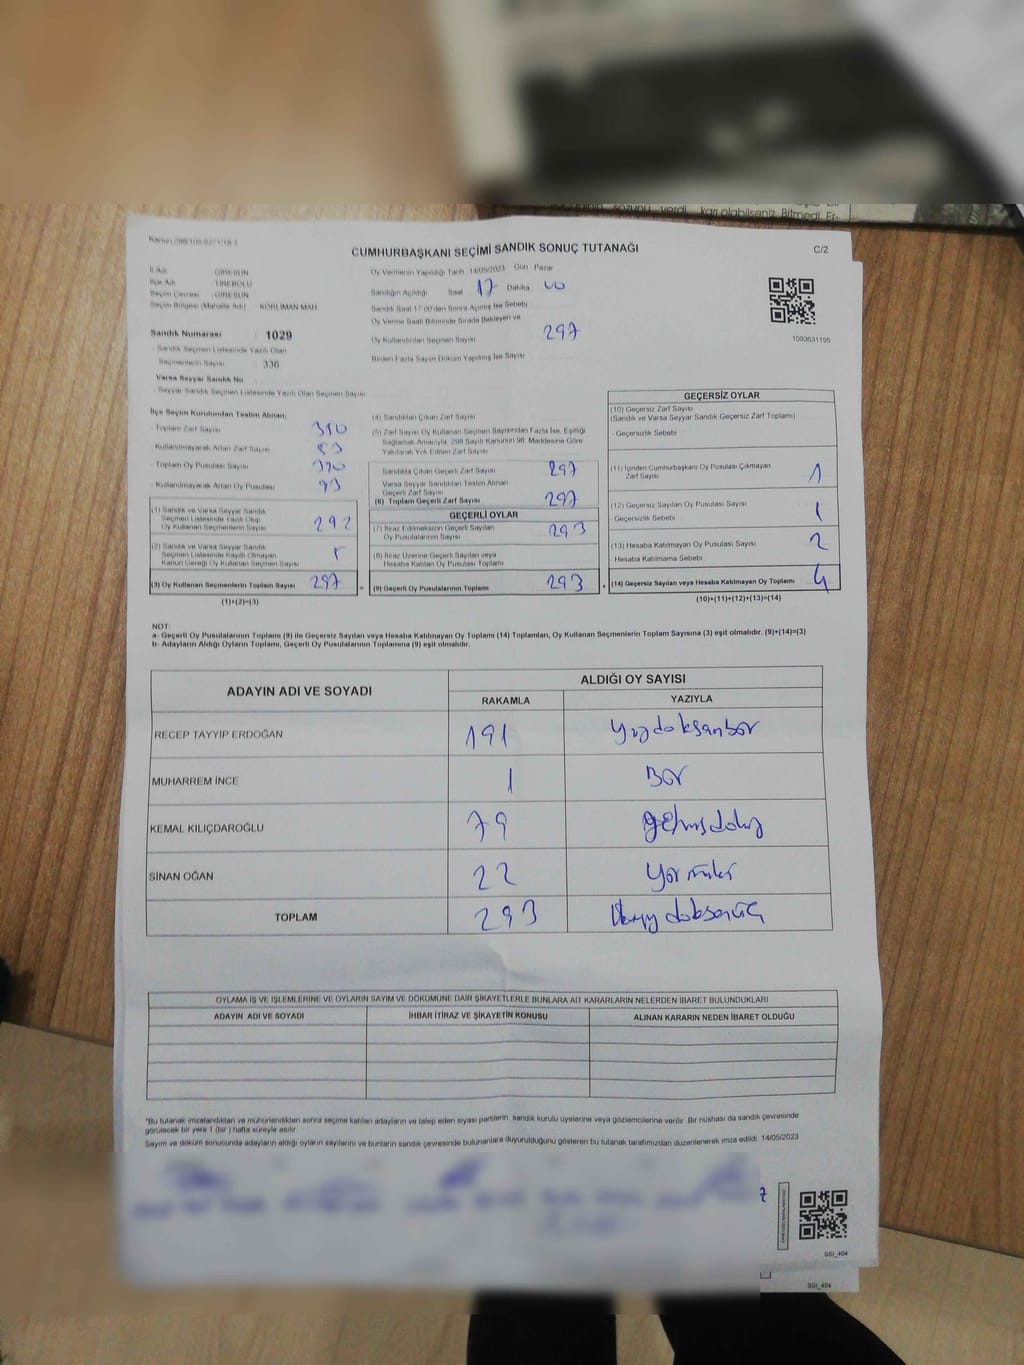 sözünü verdi. kan olabilseniz Bitmedi. Er-
CUMHURBAŞKANI SEÇİMİ SANDIK SONUÇ TUTANAĞI
C/2
İl Adı : GİRESUN
İlçe Adı : TİREBOLU
Seçim Çevresi : GİRESUN
Seçim Bölgesi (Mahalle Adı) : KÖRLİMAN MAH.
Sandık Numarası : 1029
Sandık Seçmen Listesinde Yazılı Olan
Seçmenlerin Sayısı : 336
Varsa Seyyar Sandık No
Seyyar Sandık Seçmen Listesinde Yazılı Olan Seçmen Sayısı
Oy Vermenin Yapıldığı Tarih 14/05/2023 Gün Pazar
Sandığın Açıldığı Saat 17 Dakika 00
Sandık Saat 17.00'den Sonra Açılmış İse Sebebi
Oy Verme Saati Bitiminde Sırada Bekleyen ve
Oy Kullandırılan Seçmen Sayısı 297
Birden Fazla Sayım Döküm Yapılmış İse Sayısı
1093631195
İlçe Seçim Kurulundan Teslim Alınan;
- Toplam Zarf Sayısı
- Kullanılmayarak Artan Zarf Sayısı
- Toplam Oy Pusulası Sayısı
- Kullanılmayarak Artan Oy Pusulası 93
(1) Sandık ve Varsa Seyyar Sandık
Seçmen Listesinde Yazılı Olup
Oy Kullanan Seçmenlerin Sayısı 292
(2) Sandık ve Varsa Seyyar Sandık
Seçmen Listesinde Kayıtlı Olmayan
Kanun Gereği Oy Kullanan Seçmen Sayısı 5
(3) Oy Kullanan Seçmenlerin Toplam Sayısı 297
(1)+(2)=(3)
(4) Sandıktan Çıkan Zarf Sayısı
(5) Zarf Sayısı Oy Kullanan Seçmen Sayısından Fazla İse, Eşitliği
Sağlamak Amacıyla, 298 Sayılı Kanunun 98. Maddesine Göre
Yakılarak Yok Edilen Zarf Sayısı
Sandıkta Çıkan Geçerli Zarf Sayısı 297
Varsa Seyyar Sandıktan Teslim Alınan
Geçerli Zarf Sayısı
(6) Toplam Geçerli Zarf Sayısı 297
GEÇERLİ OYLAR
(7) İtiraz Edilmeksizin Geçerli Sayılan
Oy Pusulası Sayısı 293
(8) İtiraz Üzerine Geçerli Sayılan veya
Hesaba Katılan Oy Pusulası Toplamı
= (9) Geçerli Oy Pusulalarının Toplamı 293 +
GEÇERSİZ OYLAR
(10) Geçersiz Zarf Sayısı
(Sandık ve Varsa Seyyar Sandık Geçersiz Zarf Toplamı)
- Geçersizlik Sebebi
(11) İçinden Cumhurbaşkanı Oy Pusulası Çıkmayan
Zarf Sayısı 1
(12) Geçersiz Sayılan Oy Pusulası Sayısı 1
- Geçersizlik Sebebi
(13) Hesaba Katılmayan Oy Pusulası Sayısı 2
- Hesaba Katılmama Sebebi
(14) Geçersiz Sayılan veya Hesaba Katılmayan Oy Toplamı 4
(10)+(11)+(12)+(13)=(14)
NOT:
a- Geçerli Oy Pusulalarının Toplamı (9) ile Geçersiz Sayılan veya Hesaba Katılmayan Oy Toplamı (14) Toplamları, Oy Kullanan Seçmenlerin Toplam Sayısına (3) eşit olmalıdır. (9)+(14)=(3)
b- Adayların Aldığı Oyların Toplamı, Geçerli Oy Pusulalarının Toplamına (9) eşit olmalıdır.
ADAYIN ADI VE SOYADI ALDIĞI OY SAYISI
RAKAMLA YAZIYLA
RECEP TAYYİP ERDOĞAN 191 Yüzdoksanbir
MUHARREM İNCE 1 Bir
KEMAL KILIÇDAROĞLU 79 yetmişdokuz
SİNAN OĞAN 22 Yirmiiki
TOPLAM 293 İkiyüzdoksanüç
OYLAMA İŞ VE İŞLEMLERİNE VE OYLARIN SAYIM VE DÖKÜMÜNE DAİR ŞİKAYETLERLE BUNLARA AİT KARARLARIN NELERDEN İBARET BULUNDUKLARI
ADAYIN ADI VE SOYADI İHBAR İTİRAZ VE ŞİKAYETİN KONUSU ALINAN KARARIN NEDEN İBARET OLDUĞU
*Bu tutanak imzalandıktan ve mühürlendikten sonra seçime katılan adayların ve talep eden siyasi partilerin sandık kurulu üyelerine veya gözlemcilerine verilir. Bir nüshası da sandık çevresinde
görülecek bir yere 1 (bir) hafta süreyle asılır.
Sayım ve döküm sonucunda adayların aldığı oyların sayılarını ve bunların sandık çevresinde bulunanlara duyurulduğunu gösteren bu tutanak tarafımızdan düzenlenerek imza edildi. 14/05/2023
SSI_404
SSI_404